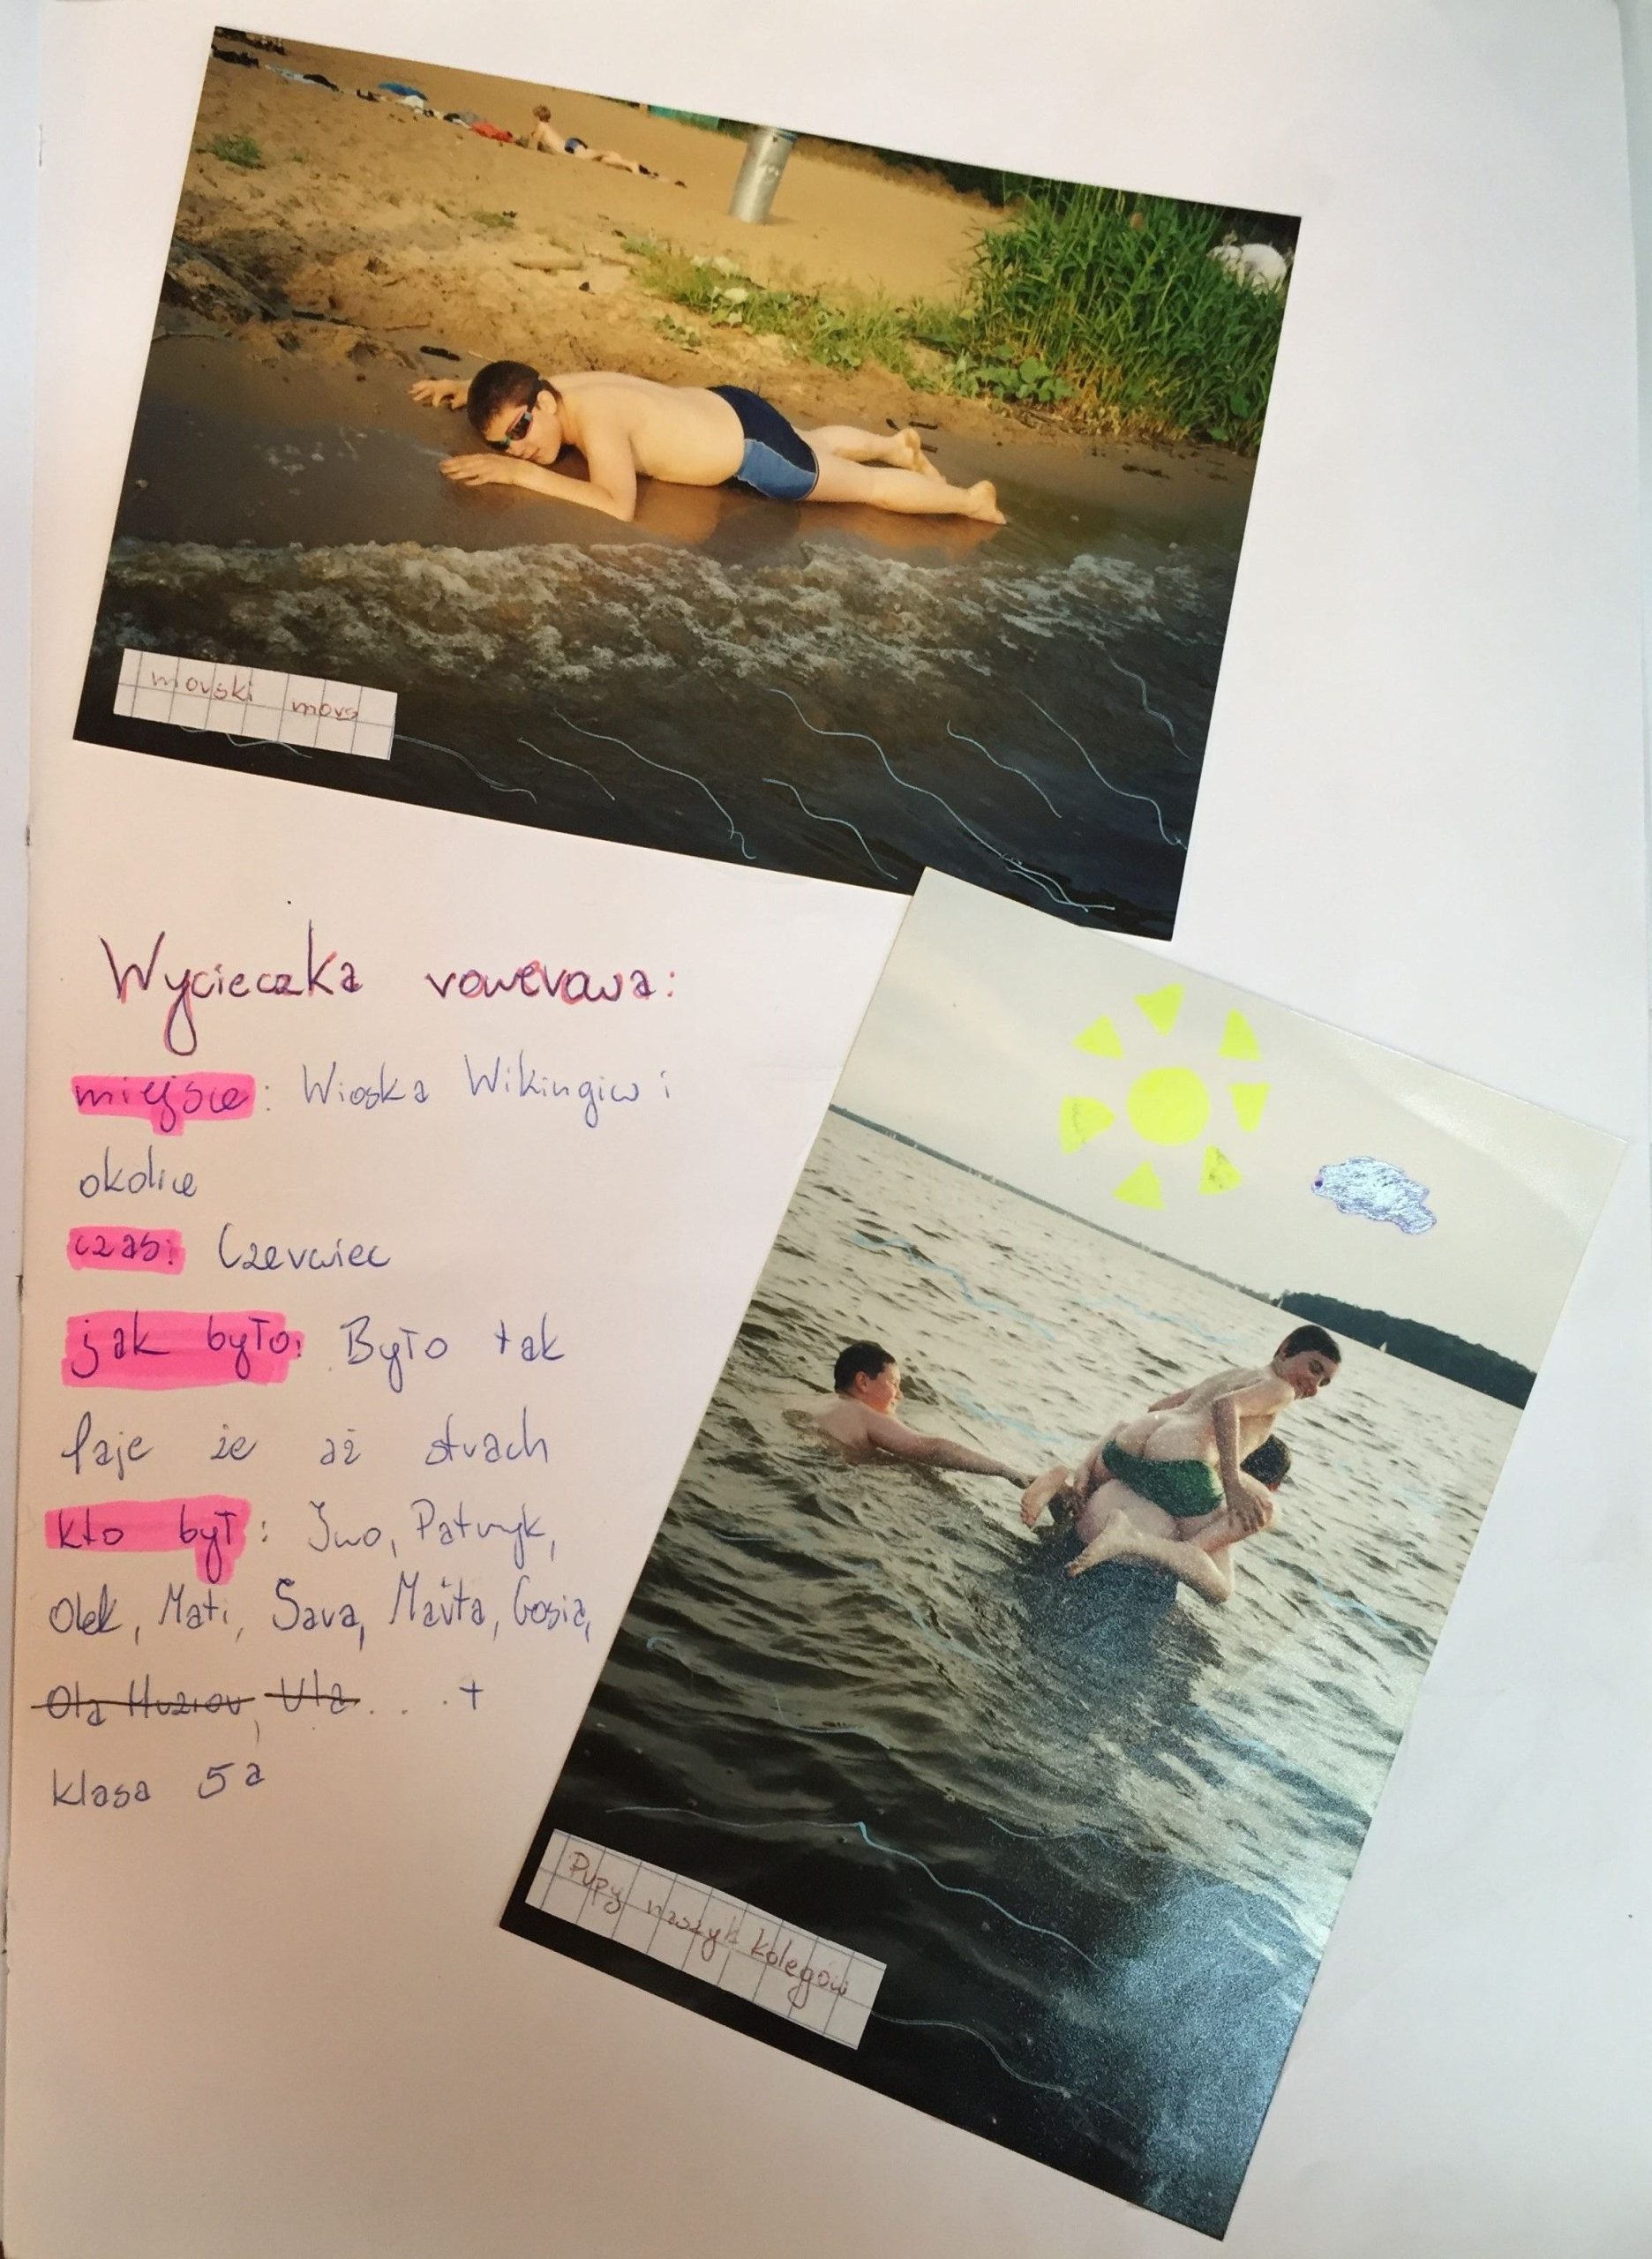 morski mors
Wycieczka rowerowa:
miejsce: Wioska Wikingiw i
okolice
czas: Czerwiec
jak było: Było tak
faje że aż strach
kto był: Iwo, Patryk,
Olek, Mati, Sara, Marta, Gosia,
Ola Ula... +
klasa 5a
Pupy naszyh kolegów